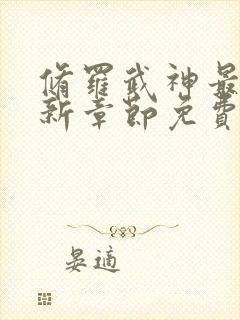 脩羅武神最
新章節免費
晏適